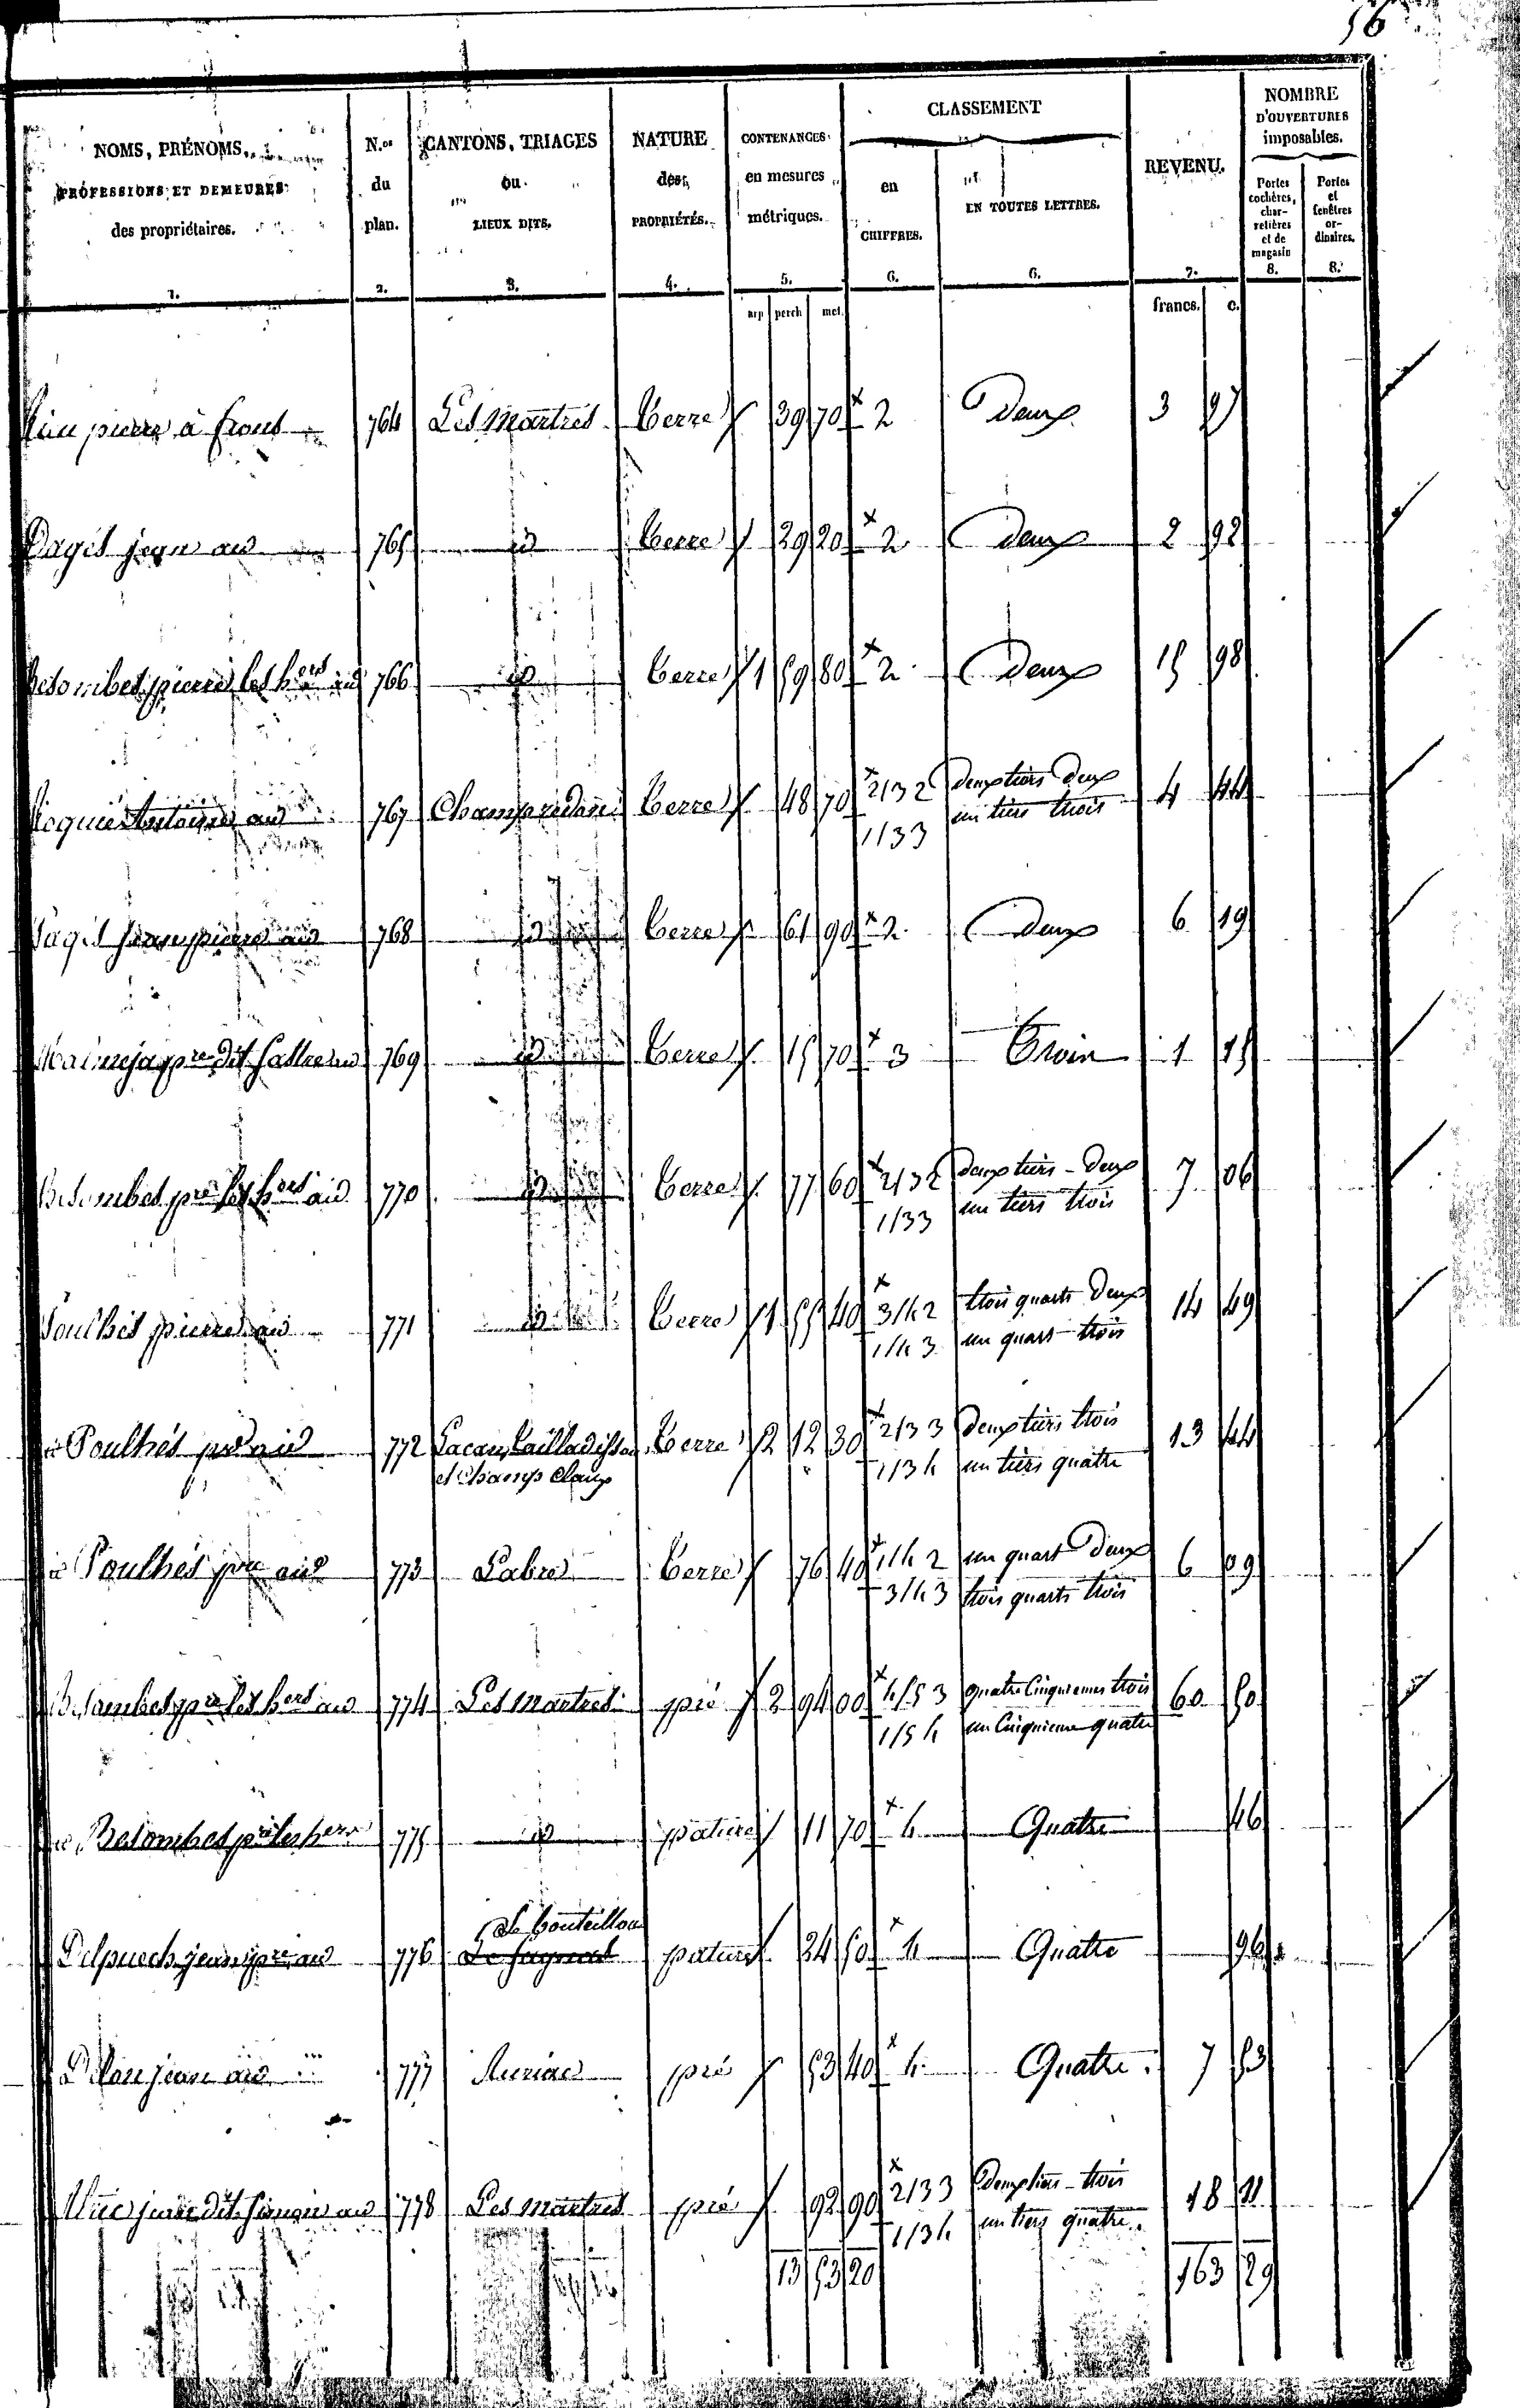 56
NOMS, PRÉNOMS, PROFESSIONS ET DEMEURES des propriétaires. 1.
N.os du plan. 2.
CANTONS, TRIAGES ou LIEUX DITS. 3.
NATURE des PROPRIÉTÉS. 4.
CONTENANCES en mesures métriques. 5.
CLASSEMENT
en CHIFFRES. 6.
EN TOUTES LETTRES. 6.
REVENU. 7.
NOMBRE D'OUVERTURES imposables.
Portes cochères, charretières et de magasin 8.
Portes et fenêtres ordinaires. 8.
arp perch met. francs. c.
pierre à frons 764 Les Martres Terre 39 70 x 2 Deux 3 97
Pagès jean aud 765 id Terre 29 20 x 2 Deux 2 92
Besombes pierre les hers aud 766 id Terre 1 59 80 x 2 Deux 15 98
Antoine aud 767 Champ redon Terre 48 70 x 2/3 2 deux tiers Deux 4 44
1/3 3 un tiers trois
Pagès jean pierre aud 768 id Terre 61 90 x 2 Deux 6 19
Malmejac pre dit aud 769 id Terre 15 70 x 3 Trois 1 15
Besombes pre les hers aud 770 id Terre 77 60 x 2/3 2 deux tiers - Deux 7 06
1/3 3 un tiers trois
Poulhès pierre aud 771 id Terre 1 55 40 x 3/4 2 trois quarts Deux 14 49
1/4 3 un quart - trois
Poulhés pre aud 772 Lacam Terre 2 12 30 x 2/3 3 Deux tiers trois 13 44
et Champ Claux 1/3 4 un tiers quatre
Poulhés pre aud 773 Labro Terre 76 40 x 1/4 2 un quart Deux 6 09
3/4 3 trois quarts trois
Besombes pre les hers aud 774 Les Martres pré 2 94 00 x 4/5 3 quatre Cinquiemes trois 60 50
1/5 4 un Cinquieme quatre
Besombes pre les hers 775 id pature 11 70 x 4 Quatre 46
Le bouteillou
Delpuech jean pre aud 776 pature 24 50 x 4 Quatre 96
jean aud 777 Auriac pré 53 40 x 4 Quatre 7 53
jean dit aud 778 Les Martres pré 92 90 x 2/3 3 Deux tiers - trois 18 11
1/3 4 un tiers quatre
13 53 20 163 29